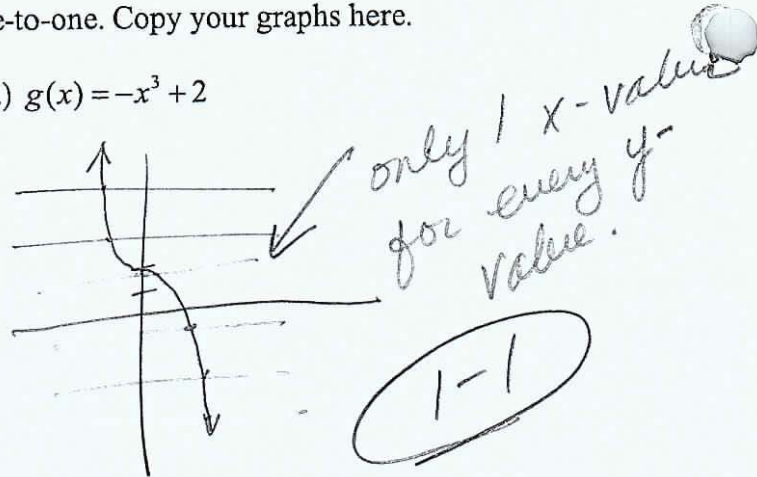 e-to-one. Copy your graphs here.
.) g(x) = −x³ + 2
only 1 x-value
for every y-
value.
1-1